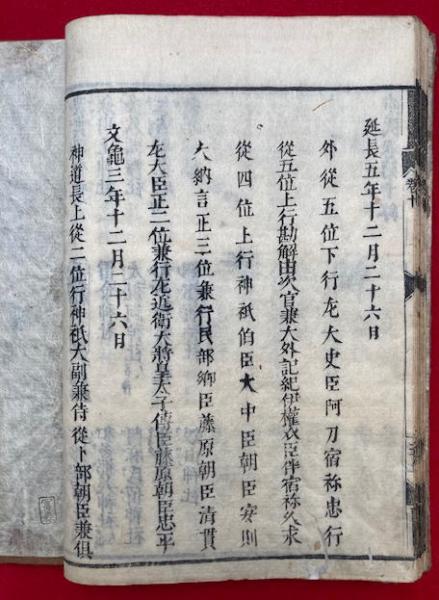 延長五年十二月二十六日
外從五位下行左大史臣阿刀宿祢忠行
從五位上行勘解由次官兼大外記紀伊權介臣伴宿祢久永
從四位上行神祇伯臣大中臣朝臣安則
大納言正三位兼行民部卿臣藤原朝臣清貫
左大臣正二位兼行左近衛大將皇太子傅臣藤原朝臣忠平
文龜三年十二月二十六日
神道長上從二位行神祇大副兼侍從卜部朝臣兼俱